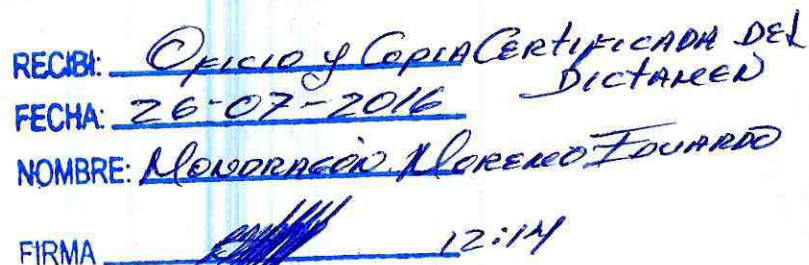 RECIBI: Oficio y Copia Certificada del
Dictamen
FECHA: 26-07-2016
NOMBRE: Mondragón Moreno Eduardo
FIRMA 12:14